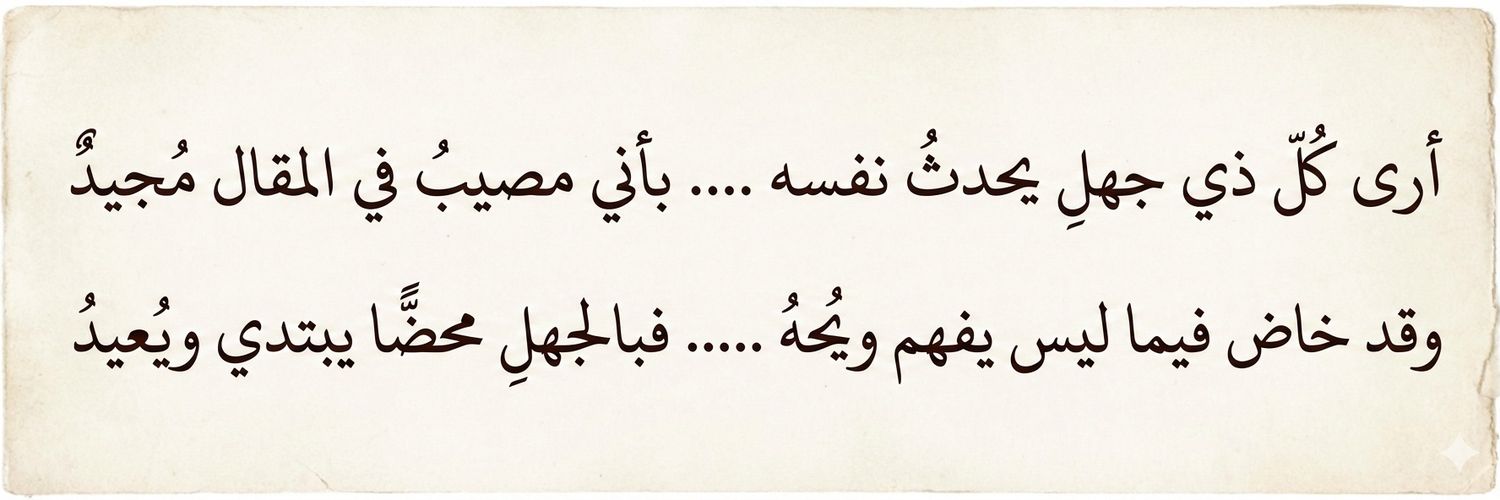 أرى كُلّ ذي جهلِ يحدثُ نفسه .... بأني مصيبُ في المقال مُجيدٌ
وقد خاض فيما ليس يفهم ويُحهُ ..... فبالجهلِ محضًّا يبتدي ويُعيدُ